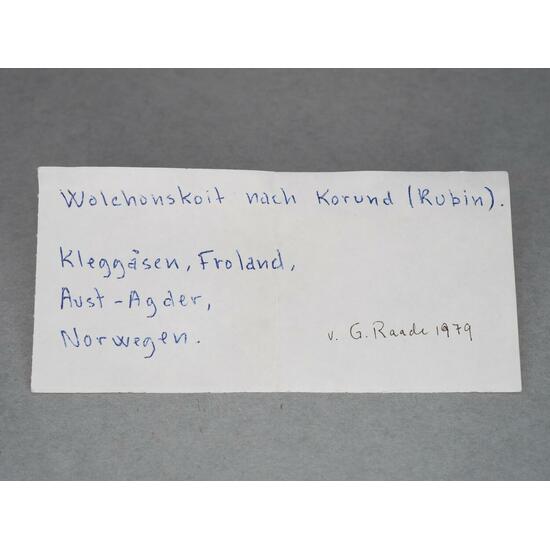 Wolchonskoit nach Korund (Rubin).
Kleggåsen, Froland,
Aust-Agder,
Norwegen.
v. G. Raade 1979